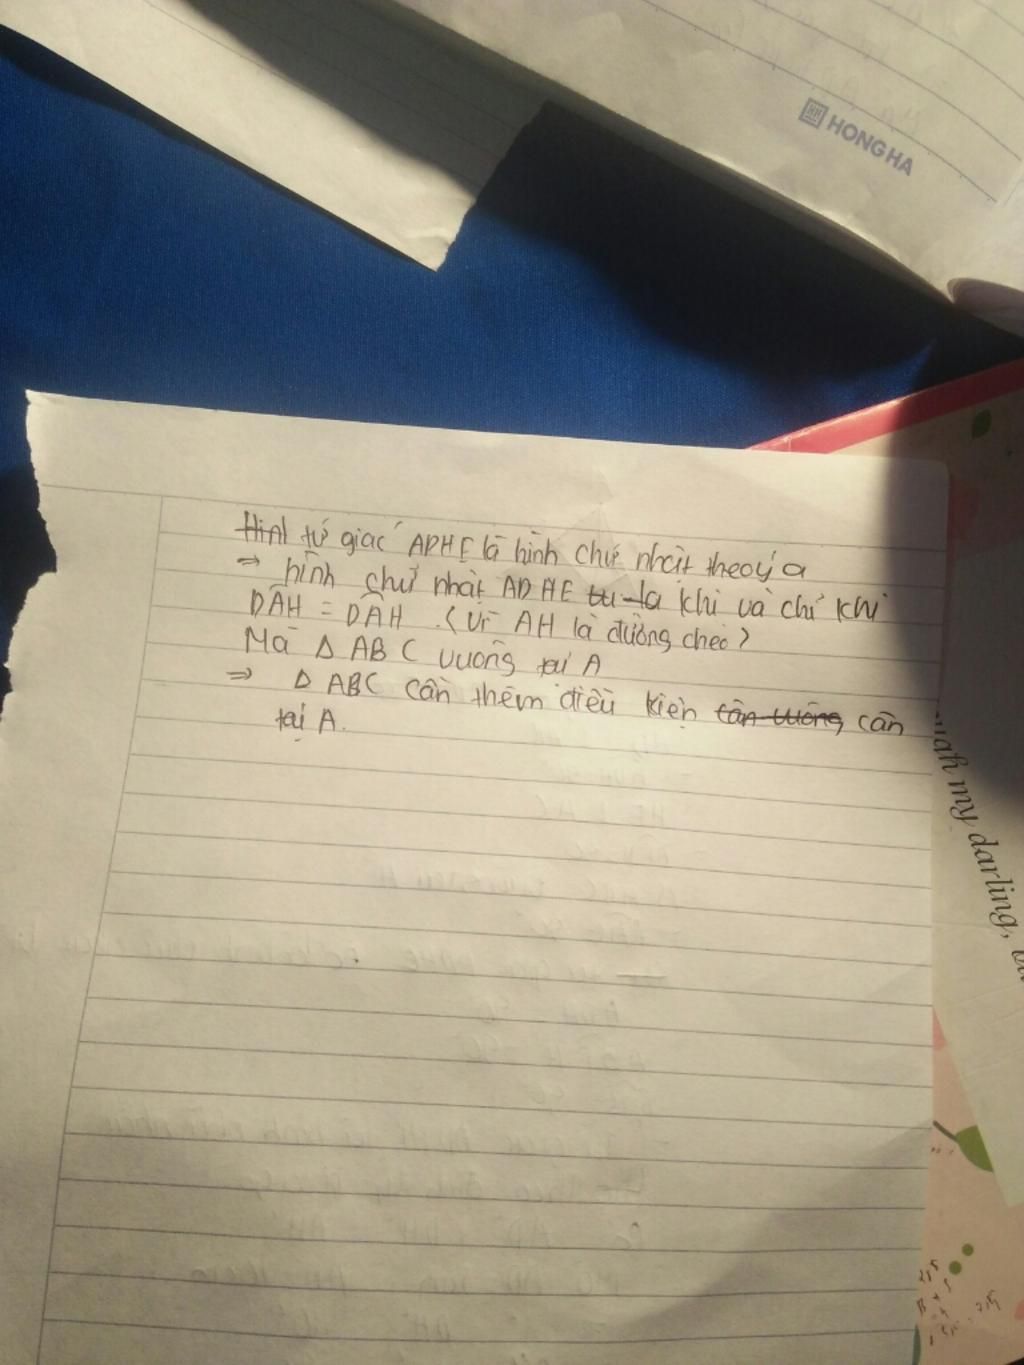 HONG HA
Hinh tứ giác ADHE là hình chữ nhật theo ý a
⇒ hình chữ nhật ADHE tu là khi và chỉ khi
DÂH = DÂH . (Vì AH là đường chéo)
Mà Δ ABC vuông tại A
⇒ Δ ABC cần thêm điều kiện cân vuông cân
tại A.
my darling,